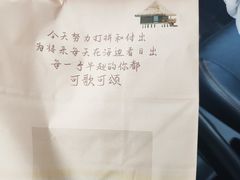 今天努力打拼和付出
为将来每天在海边看日出
每一季早起的你都
可歌可颂